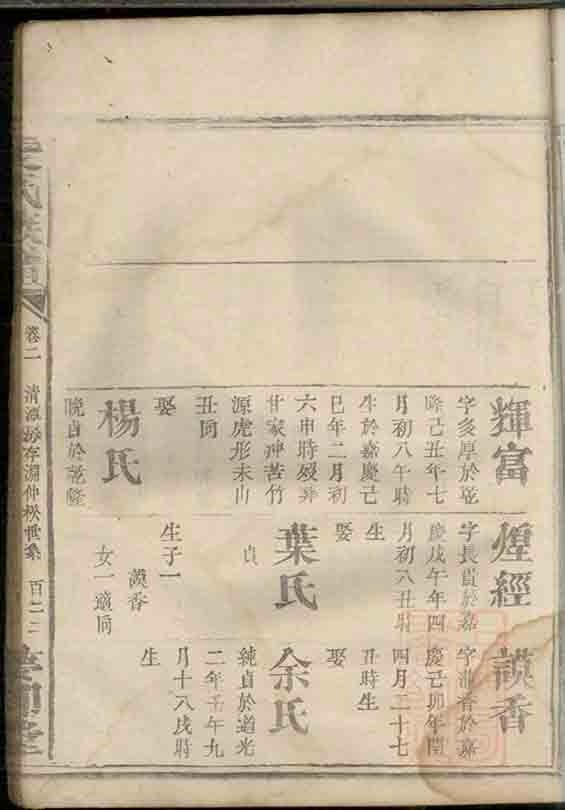 輝富
字亥厚於乾
隆己丑年七
月初八午時
生於嘉慶己
巳年二月初
六申時歿葬
甘家冲苦竹
源虎形未山
丑向
娶
楊氏
貞於乾隆
煋經
字長貴於嘉
慶戊午年四
月初八丑時
生
娶
葉氏
貞
生子一
謨香
女一適同
謨香
字 香於嘉
慶己卯年閏
四月二十七
丑時生
娶
余氏
純貞於道光
二年壬午九
月十八戌時
生
氏族譜
卷二
清潭 存淵仲松世系
百二十二